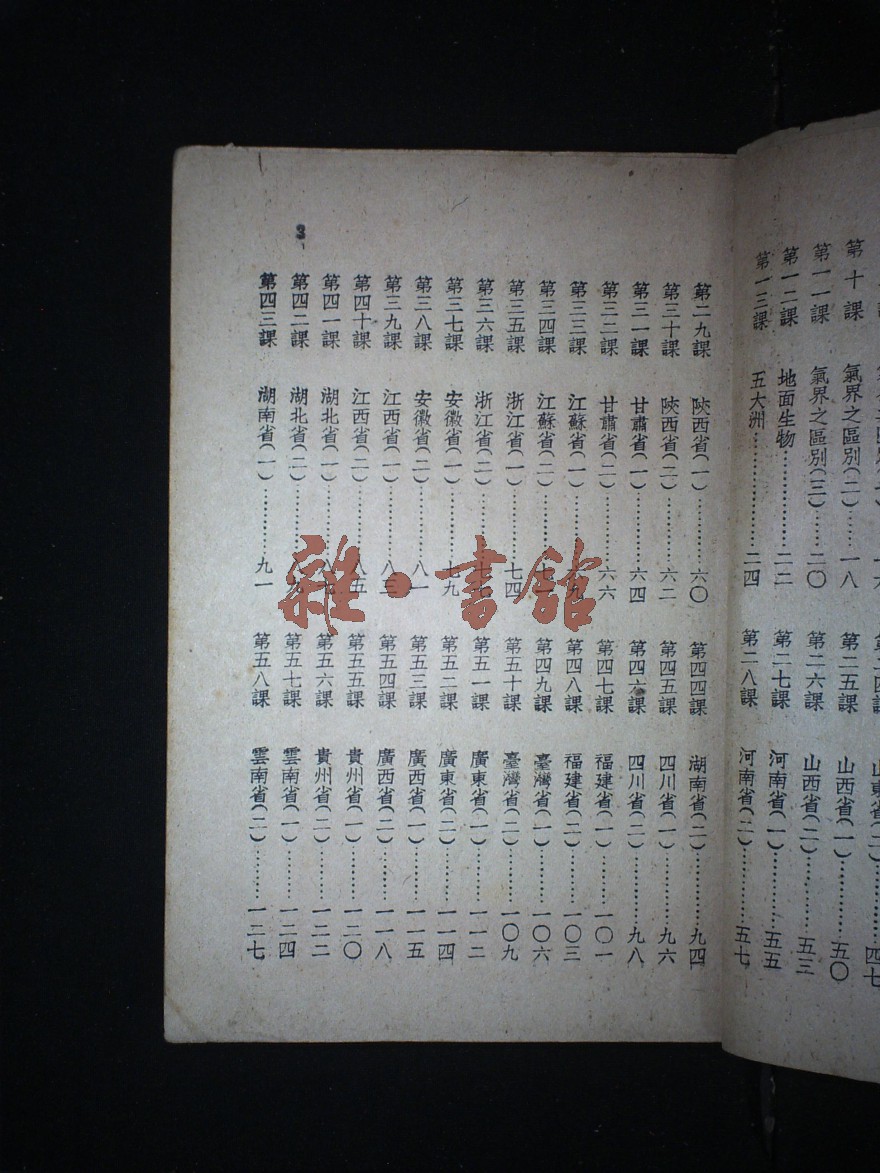 第十課 氣界之區別(二)……一八
第一一課 氣界之區別(三)……二〇
第一二課 地面生物…………二二
第一三課 五大洲……………二四
山東省(二)………四七
第二五課 山西省(一)………五〇
第二六課 山西省(二)………五三
第二七課 河南省(一)………五五
第二八課 河南省(二)………五七
3
第二九課 陝西省(一)………六〇
第三十課 陝西省(二)………六二
第三一課 甘肅省(一)………六四
第三二課 甘肅省(二)………六六
第三三課 江蘇省(一)………九
第三四課 江蘇省(二)………七一
第三五課 浙江省(一)………七四
第三六課 浙江省(二)………七七
第三七課 安徽省(一)………七九
第三八課 安徽省(二)………八一
第三九課 江西省(一)………八三
第四十課 江西省(二)………八五
第四一課 湖北省(一)………八七
第四二課 湖北省(二)………八九
第四三課 湖南省(一)………九一
第四四課 湖南省(二)………九四
第四五課 四川省(一)………九六
第四六課 四川省(二)………九八
第四七課 福建省(一)………一〇一
第四八課 福建省(二)………一〇三
第四九課 臺灣省(一)………一〇六
第五十課 臺灣省(二)………一〇九
第五一課 廣東省(一)………一一二
第五二課 廣東省(二)………一一四
第五三課 廣西省(一)………一一五
第五四課 廣西省(二)………一一八
第五五課 貴州省(一)………一二〇
第五六課 貴州省(二)………一二二
第五七課 雲南省(一)………一二四
第五八課 雲南省(二)………一二七
雜·書館